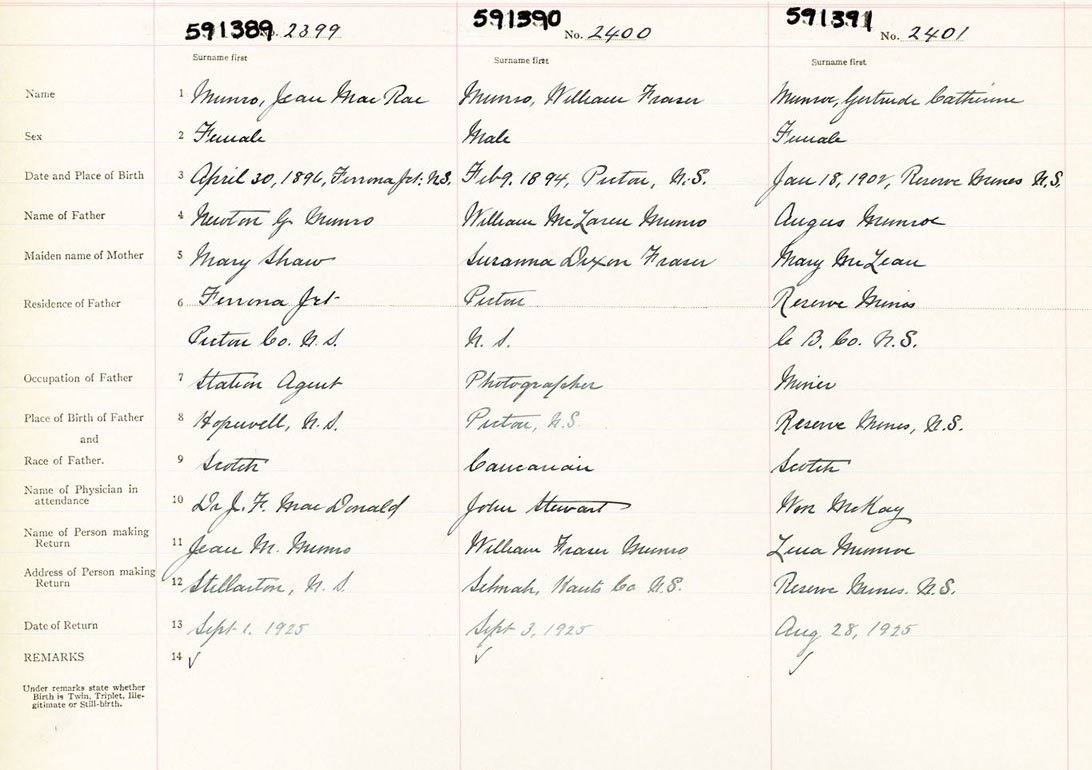 591389 No. 2399 591390 No. 2400 591391 No. 2401
Surname first Surname first Surname first
Name 1 Munro, Jean Mac Rae Munro, William Fraser Munroe, Gertrude Catherine
Sex 2 Female Male Female
Date and Place of Birth 3 April 30, 1896, Ferrona Jct. N.S. Feb 9. 1894, Pictou, N.S. Jan 18, 1902, Reserve Mines N.S.
Name of Father 4 Newton G. Munro William McLaren Munro Angus Munroe
Maiden name of Mother 5 Mary Shaw Susanna Dixon Fraser Mary McLean
Residence of Father 6 Ferrona Jct Pictou Reserve Mines
Pictou Co. N.S. N.S. C B. Co. N.S.
Occupation of Father 7 Station Agent Photographer Miner
Place of Birth of Father 8 Hopewell, N.S. Pictou, N.S. Reserve Mines, N.S.
and
Race of Father. 9 Scotch Caucasian Scotch
Name of Physician in
attendance 10 Dr J. F. MacDonald John Stewart Wm McKay
Name of Person making
Return 11 Jean M. Munro William Fraser Munro Lena Munroe
Address of Person making
Return 12 Stellarton, N.S. Selmah, Hants Co N.S. Reserve Mines. N.S.
Date of Return 13 Sept 1. 1925 Sept 3, 1925 Aug 28, 1925
REMARKS 14 ✓ ✓ ✓
Under remarks state whether
Birth is Twin, Triplet, Ille-
gitimate or Still-birth.